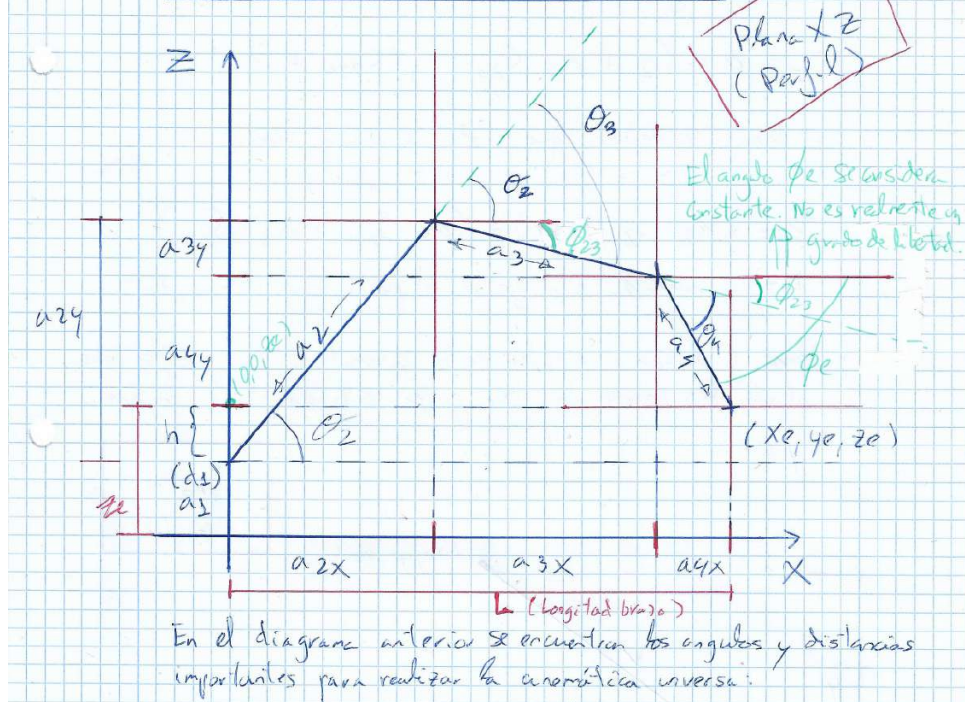 Plano XZ
(Perfil)
Z
θ3
θ2
El angulo ϕe se considera
constante. No es realmente un
grado de libertad.
a3y
a3
ϕ23
ϕ23
a2y
a2
a4y
θ4
ϕe
(0,0,ze)
h
θ2
(xe, ye, ze)
(d1)
a1
ze
a2x
a3x
a4x
X
L (Longitud brazo)
En el diagrama anterior se encuentran los angulos y distancias
importantes para realizar la cinemática inversa: